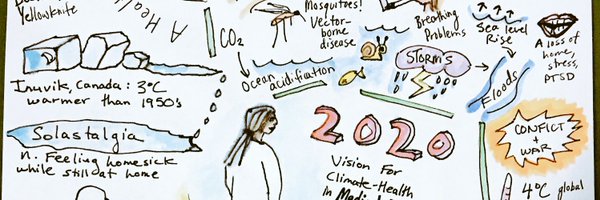 Yellowknife
A Hea
CO₂
Mosquitoes!
Vector-
borne
disease
Breathing
Problems
Sea level
Rise
A loss of
home,
stress,
PTSD
Inuvik, Canada: 3°C
warmer than 1950s
Ocean acidification
STORMS
Floods
Solastalgia
n. Feeling homesick
while still at home
2020
Vision For
Climate-Health
CONFLICT
+
WAR
4°C global